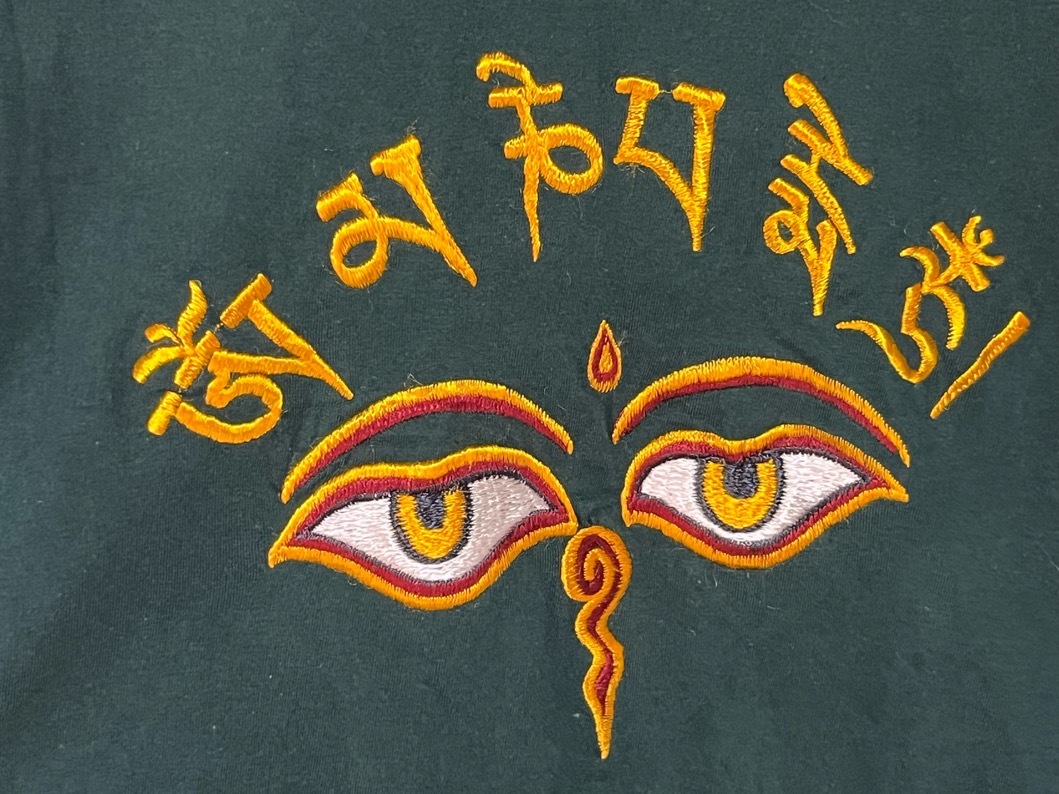 ༀ མ ཎི པ དྨེ ཧཱུྃ།